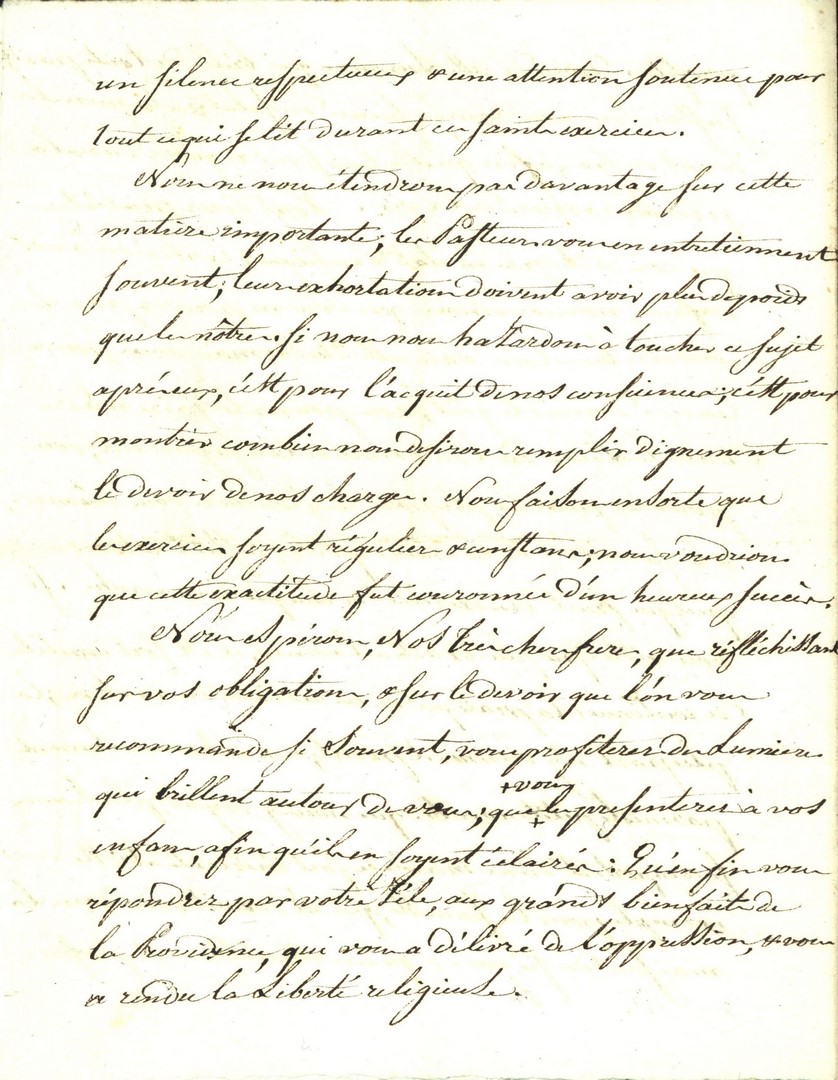 un silence respectueux & une attention soutenue pour
tout ce qui se lit durant ce saint exercice.
Nous ne nous étendrons pas davantage sur cette
matière importante; les Pasteurs vous en entretiennent
souvent; leurs exhortations doivent avoir plus de poids
que les nôtres. Si nous nous hazardons à toucher ce sujet
après eux, c'est pour l'acquit de nos consciences; c'est pour
montrer combien nous desirons remplir dignement
les devoirs de nos charges. Nous faisons ensorte que
les exercices soyent réguliers & constans; nous voudrions
que cette exactitude fut couronnée d'un heureux succès.
Nous espérons, Nos très chers freres, que réfléchissant
sur vos obligations, & sur les devoirs que l'on vous
recommande si souvent, vous profiterez des Lumieres
+ vous
qui brillent autour de vous; que + les presenterez à vos
enfans, afin qu'ils en soyent éclairés: Qu'enfin vous
répondrez par votre Zéle, aux grands bienfaits de
la Providence, qui vous a délivré de l'oppression, & vous
a rendu la Liberté religieuse.